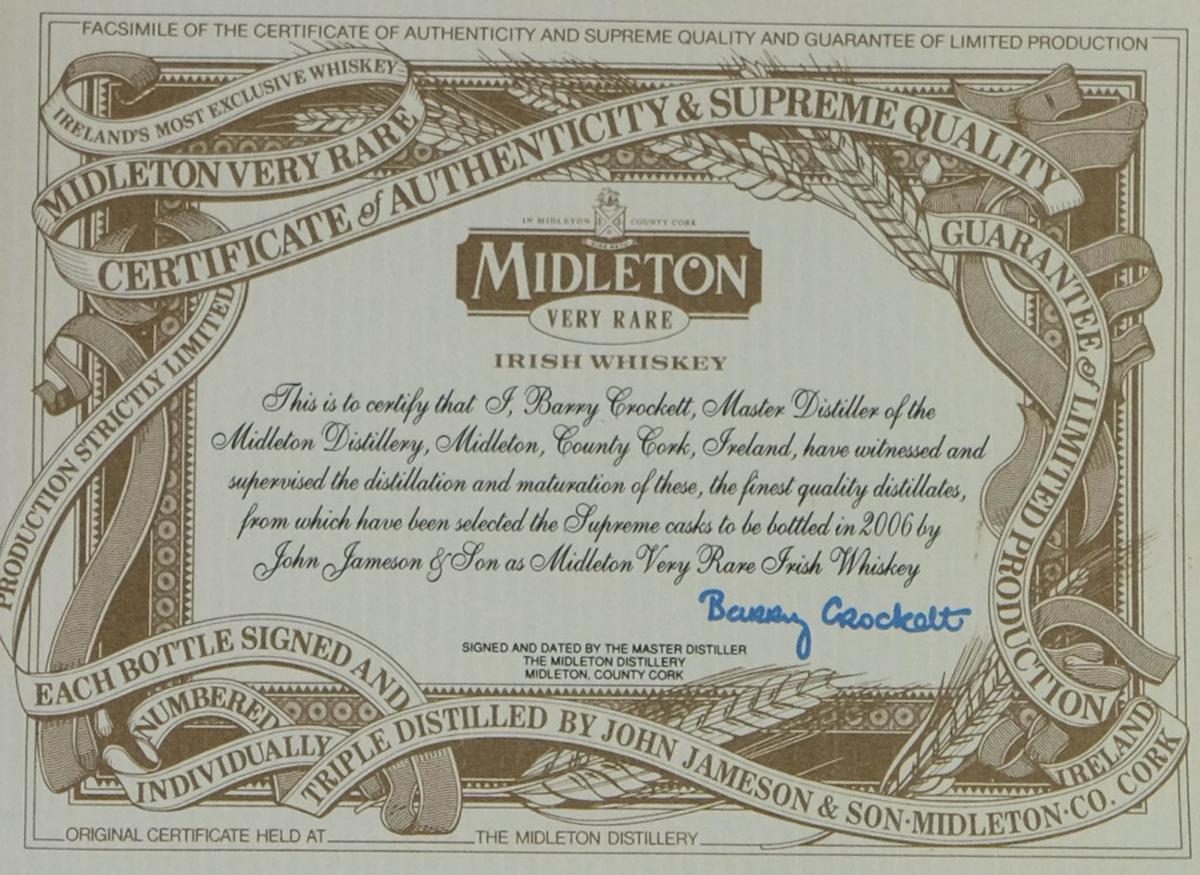 FACSIMILE OF THE CERTIFICATE OF AUTHENTICITY AND SUPREME QUALITY AND GUARANTEE OF LIMITED PRODUCTION
IRELAND'S MOST EXCLUSIVE WHISKEY
MIDLETON VERY RARE
CERTIFICATE of AUTHENTICITY & SUPREME QUALITY
GUARANTEE of LIMITED PRODUCTION
IN MIDLETON COUNTY CORK
MIDLETON
VERY RARE
IRISH WHISKEY
This is to certify that I, Barry Crockett, Master Distiller of the
Midleton Distillery, Midleton, County Cork, Ireland, have witnessed and
supervised the distillation and maturation of these, the finest quality distillates,
from which have been selected the Supreme casks to be bottled in 2006 by
John Jameson & Son as Midleton Very Rare Irish Whiskey
Barry Crockett
SIGNED AND DATED BY THE MASTER DISTILLER
THE MIDLETON DISTILLERY
MIDLETON, COUNTY CORK
PRODUCTION STRICTLY LIMITED
EACH BOTTLE SIGNED AND
NUMBERED
INDIVIDUALLY
TRIPLE DISTILLED BY JOHN JAMESON & SON·MIDLETON·CO. CORK
IRELAND
ORIGINAL CERTIFICATE HELD AT THE MIDLETON DISTILLERY